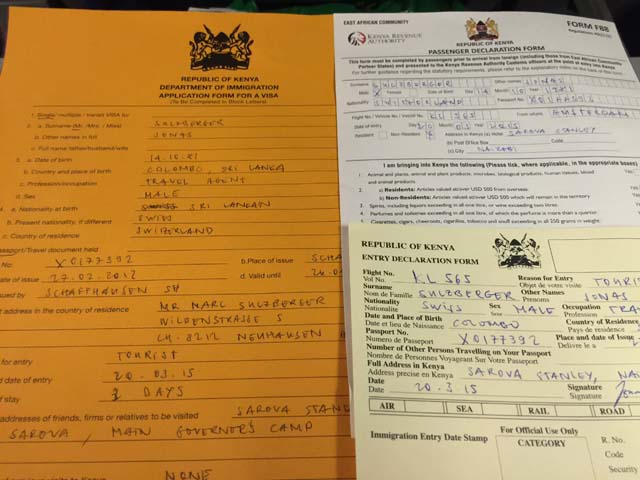 REPUBLIC OF KENYA
DEPARTMENT OF IMMIGRATION
APPLICATION FORM FOR A VISA
(To Be Completed in Block Letters)
1. Single/multiple / transit VISA by
2. a Surname (Mr./Mrs. / Miss) SULZBERGER
b Other names in full JONAS
c Full name father/husband/wife
3. a Date of birth 14.10.81
b Country and place of birth COLOMBO, SRI LANKA
c. Profession/occupation TRAVEL AGENT
d. Sex MALE
4. a. Nationality at birth SRI LANKAN
b. Present nationality, if different SWISS
c. Country of residence SWITZERLAND
Passport/Travel document held
No: X0177392 b.Place of issue SCHA
Date of issue 27.02.2012 d. Valid until
Issued by SCHAFFHAUSEN SH
address in the country of residence MR MARC SULZBERGER
WILDENSTRASSE 5
CH-8212 NEUHAUSEN
for entry TOURIST
d date of entry 20.03.15
of stay 3 DAYS
addresses of friends, firms or relatives to be visited SAROVA STAN
SAROVA, MAIN GOVERNOR'S CAMP
NONE
EAST AFRICAN COMMUNITY
FORM F88
KENYA REVENUE
AUTHORITY
REPUBLIC OF KENYA
PASSENGER DECLARATION FORM
This form must be completed by passengers prior to arrival from foreign (including those from East African Community
Partner States) and presented to the Kenya Revenue Authority Customs officers at the point of entry into Kenya
For further guidance regarding the statutory requirements, please refer to the explanatory notes on the back of this form.
Surname SULZBERGER Other names JONAS
Male X Female Date of Birth Day 14 Month 10 Year 1981
Nationality SWITZERLAND Passport No
Flight No / Vehicle No / Vessel No KL 565 From where AMSTERDAM
Date of entry 20 Month 03 Year 2015
Resident Non-Resident X Address in Kenya (a) Hotel SAROVA STANLEY
(b) Post Office Box Code
(c) City NAIROBI
I am bringing into Kenya the following (Please tick, where applicable, in the appropriate boxes)
1. Animal and plants, animal and plant products, microbes, biological products, human tissues, blood
and animal products. Yes
2. a) Residents: Articles valued at/over USD 500 from overseas. Yes
b) Non-Residents: Articles valued at/over USD 500 which will remain in the territory Yes
3. Spirits, including liquors exceeding one litre, or wine exceeding two litres.
4. Perfumes and toilettes exceeding in all one litre, of which the perfume is more than a quarter.
Cigarettes, cigars, cheroots, cigarillos, tobacco and snuff exceeding in all 250 grams in weight.
REPUBLIC OF KENYA
ENTRY DECLARATION FORM
Flight No.
Vol No. KL 565 Reason for Entry
Objet de votre visite TOURIS
Surname
Nom de Famille SULZBERGER Other Names
Prenoms JONAS
Nationality
Nationalite SWISS Sex
Sexe MALE Occupation
Profession TRA
Date and Place of Birth
Date et lieu de Naissance COLOMBO Country of Residence
Pays de residence
Passport No.
Numero de Passeport X0177392 Place and date of issue
Delivre le a
Number of Other Persons Travelling on Your Passport
Nombre de Personnes Voyagrant Sur Votre Passeport
Full Address in Kenya
Address precise en Kenya SAROVA STANLEY, NAI
Date
Date 20.3.15 Signature
Signature
AIR SEA RAIL ROAD
For Official Use Only
Immigration Entry Date Stamp CATEGORY R. No.
Code
Security